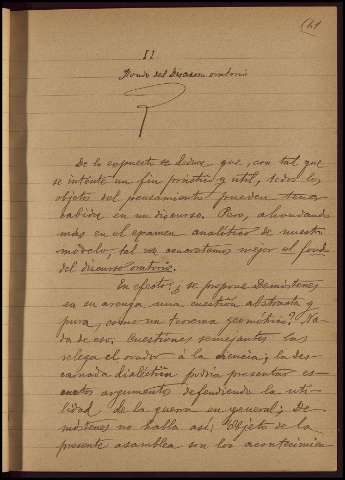 (41
II
Fondo del Discurso oratorio
De lo expuesto se deduce, que, con tal que
se intente un fin práctico y útil, todos los
objetos del pensamiento pueden tener
cabida en un discurso. Pero, ahondando
más en el examen analítico de nuestro
modelo, tal vez concretemos mejor el fondo
del discurso oratorio.
En efecto: ¿se propone Demóstenes
en su arenga una cuestión abstracta y
pura, como un teorema geométrico? Na-
da de eso. Cuestiones semejantes las
relega el orador á la ciencia; la des-
carnada dialéctica podría presentar es-
cuetos argumentos defendiendo la uti-
lidad de la guerra en general; De-
móstenes no habla así. Objeto de la
presente asamblea son los acontecimien